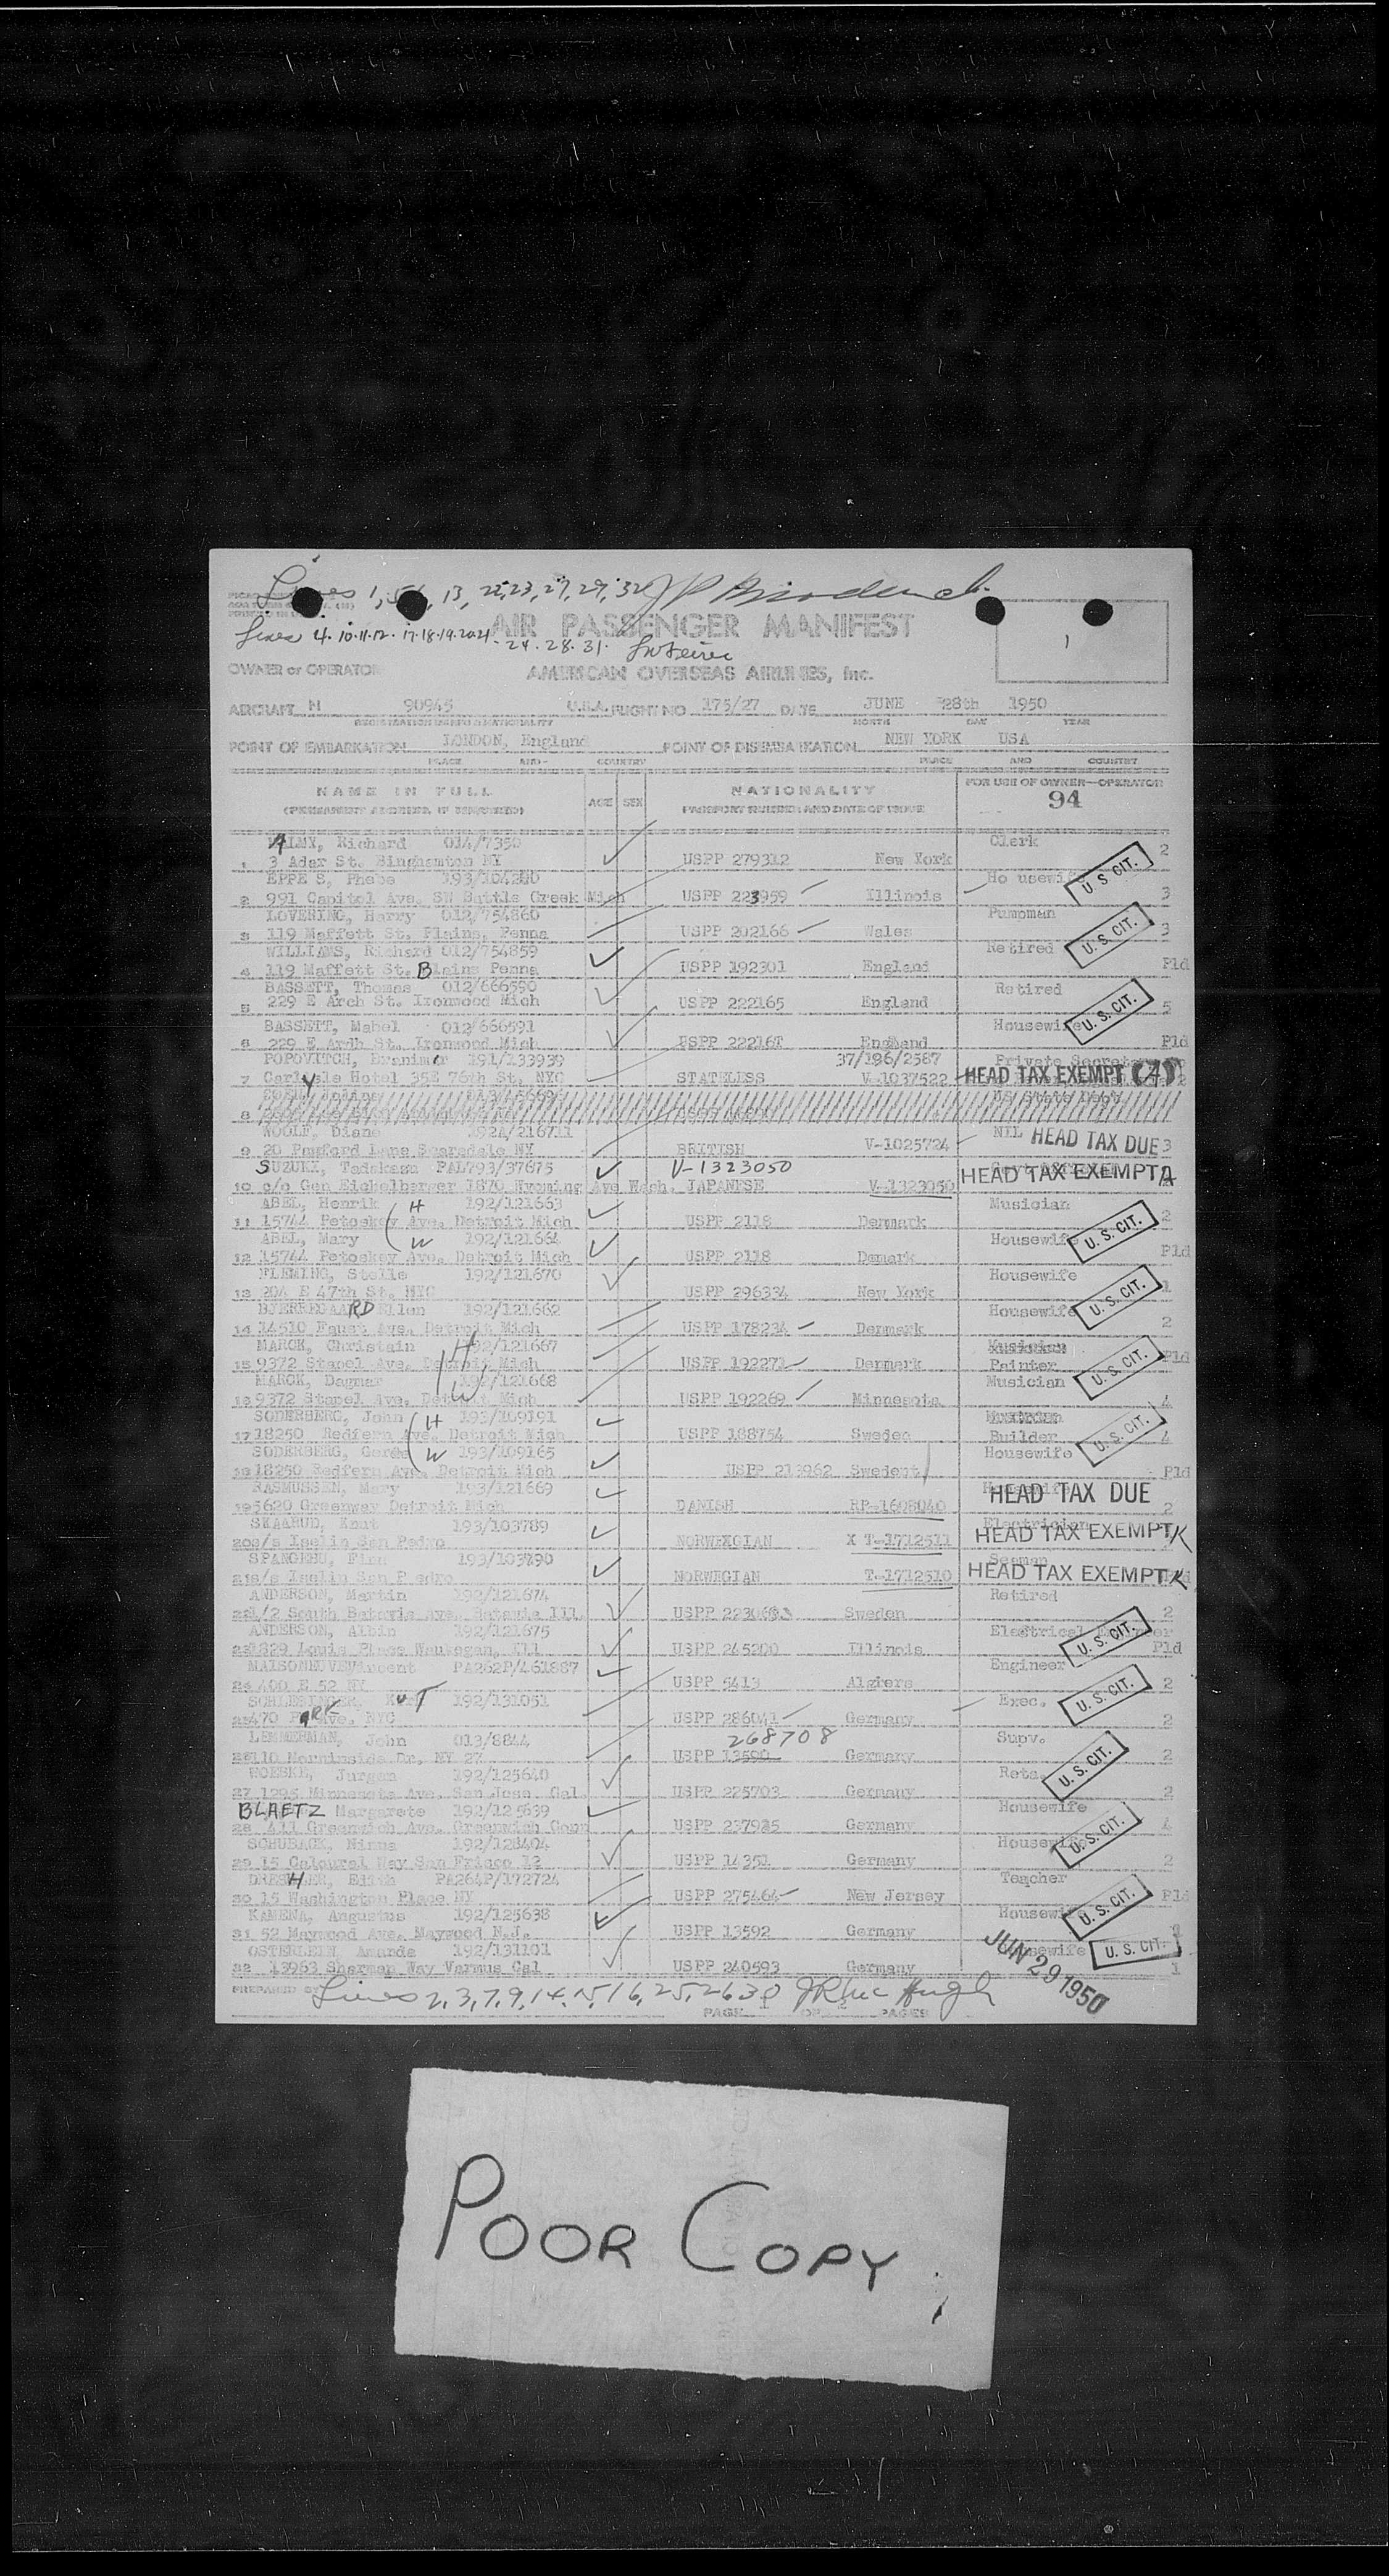 Lines 1, 5, 13, 22, 23, 27, 29, 32
Lines 4. 10. 11. 12. 17. 18. 19. 20. 21. 24. 28. 31.
AIR PASSENGER MANIFEST
1
OWNER or OPERATOR AMERICAN OVERSEAS AIRLINES, Inc.
AIRCRAFT N 90945 U.S.A. FLIGHT NO 175/27 DATE JUNE 28th 1950
REGISTRATION MARKS & NATIONALITY MONTH DAY YEAR
POINT OF EMBARKATION LONDON, England POINT OF DISEMBARKATION NEW YORK USA
PLACE AND COUNTRY PLACE AND COUNTRY
NAME IN FULL AGE SEX NATIONALITY FOR USE OF OWNER—OPERATOR
(PERMANENT ADDRESS, IF REQUIRED) PASSPORT NUMBER AND DATE OF ISSUE 94
ALMY, Richard 014/7350 Clerk 2
1 3 Adar St. Binghamton NY USPP 279312 New York U.S. CIT.
EPPE S, Phebe 193/104280 Ho usewife
2 991 Capitol Ave. SW Battle Creek Mich USPP 223959 Illinois 3
LOVERING, Harry 012/754860 Pumpman
3 119 Maffett St. Plains, Penna USPP 202166 Wales U.S. CIT. 3
WILLIAMS, Richard 012/754859 Retired
4 119 Maffett St. Blains Penna USPP 192301 England Pld
BASSETT, Thomas 012/666590 Retired
5 229 E Arch St. Ironwood Mich USPP 222165 England U.S. CIT. 5
BASSETT, Mabel 012/666591 Housewife
6 229 E Ardh St. Ironwood Mich USPP 22216T England Pld
POPOVITCH, Branimir 191/133939 37/196/2587 Private Secretary
7 Carlyle Hotel 35E 76th St. NYC STATELESS V-1037522 HEAD TAX EXEMPT (A)
8 US State Dept
WOOLF, Diane 192A/216711 NIL HEAD TAX DUE 3
9 20 Lane Scarsdale NY BRITISH V-1025724
SUZUKI, Tadakasa PAL793/37675 V-1323050 HEAD TAX EXEMPT A
10 c/o Gen Eichelberger 1870 Wyoming Ave Wash. JAPANESE V-1323050
ABEL, Henrik H 192/121663 Musician
11 15744 Petoskey Ave. Detroit Mich USPP 2118 Denmark U.S. CIT. 2
ABEL, Mary W 192/121664 Housewife
12 15744 Petoskey Ave. Detroit Mich USPP 2118 Demark Pld
FLEMING, Stelle 192/121670 Housewife
13 204 E 47th St. NYC USPP 296334 New York U.S. CIT. 1
BJERREGAARD Ellen 192/121662 Housewife
14 14510 Faust Ave. Detroit Mich USPP 178234 Denmark 2
MARCK, Christain H 192/121667 Musician
15 9372 Stapel Ave. Detroit Mich USPP 192271 Denmark Painter U.S. CIT. Pld
MARCK, Dagmar W 192/121668 Musician
16 9372 Stapel Ave. Detroit Mich USPP 192269 Minnesota 4
SODERBERG, John H 193/109191
17 18250 Redfern Ave. Detroit Mich USPP 188754 Sweden Builder U.S. CIT. 4
SODERBERG, Gerda W 193/109165 Housewife
18 18250 Redfern Ave. Detroit Mich USPP 213962 Swedent Pld
RASMUSSEN, Mary 193/121669 Housewife
19 5620 Greenway Detroit Mich DANISH RP-1698040 HEAD TAX DUE 2
SKAARUD, Knut 193/103789 Electrician
20 s/s Iselin San Pedro NORWEXGIAN X T-1712511 HEAD TAX EXEMPT K
SPANGEHU, Finn 193/103790 Seaman
21 s/s Iselin San P edro NORWEGIAN T-1712510 HEAD TAX EXEMPT K
ANDERSON, Martin 192/121674 Retired
22 1/2 South Batavia Ave. Batavia Ill. USPP 223063 Sweden 2
ANDERSON, Albin 192/121675 Electrical Engineer
23 1829 Louis Place Waukegan, Ill USPP 245200 Illinois U.S. CIT. Pld
MAISONEUVE, Vincent PA262P/461887 Engineer
24 400 E 52 NY USPP 5413 Algiers 2
SCHLESINGER, KuT 192/131051 Exec. U.S. CIT.
25 470 PARK Ave. NYC USPP 286041 Germany 2
LEMMERMAN, John 013/8844 268708 Supv.
26 110 Morninside Dr. NY 27 USPP 13590 Germany 2
WOESKE, Jurgen 192/125640 Retd. U.S. CIT.
27 1295 Minnesota Ave. San Jose Cal. USPP 225703 Germany 2
BLAETZ Margarete 192/125639 Housewife
28 411 Greenwich Ave. Greenwich Conn USPP 237925 Germany 4
SCHUBACK, Minna 192/128404 Housewife U.S. CIT.
29 15 Caloural Way San Frisco 12 USPP 14351 Germany 2
DRESHER, Edith PA264P/172724 Teacher
30 15 Washington Place NY USPP 275464 New Jersey Pld
KAMENA, Augustus 192/125638 Housewife U.S. CIT.
31 52 Maywood Ave. Maywood N.J. USPP 13592 Germany
OSTERLEIN, Amanda 192/131101 Housewife U.S. CIT.
32 13963 Sherman Way Varmus Cal USPP 240593 Germany 1
JUN 29 1950
PREPARED BY Lines 2, 3, 7, 9, 14, 15, 16, 25, 26 30 JR Mc Hugh
PAGE 1 OF 2 PAGES
POOR COPY